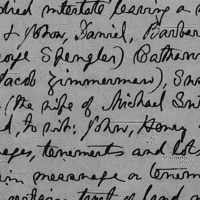 died intestate leaving a
& John, Daniel, Barbara
George Spengler) Catharin
Jacob Zimmerman), Su
(the wife of Michael Sni
d, to wit: John, Henry
ages, tenements and lots
in messuage or tenem
certain tract of land